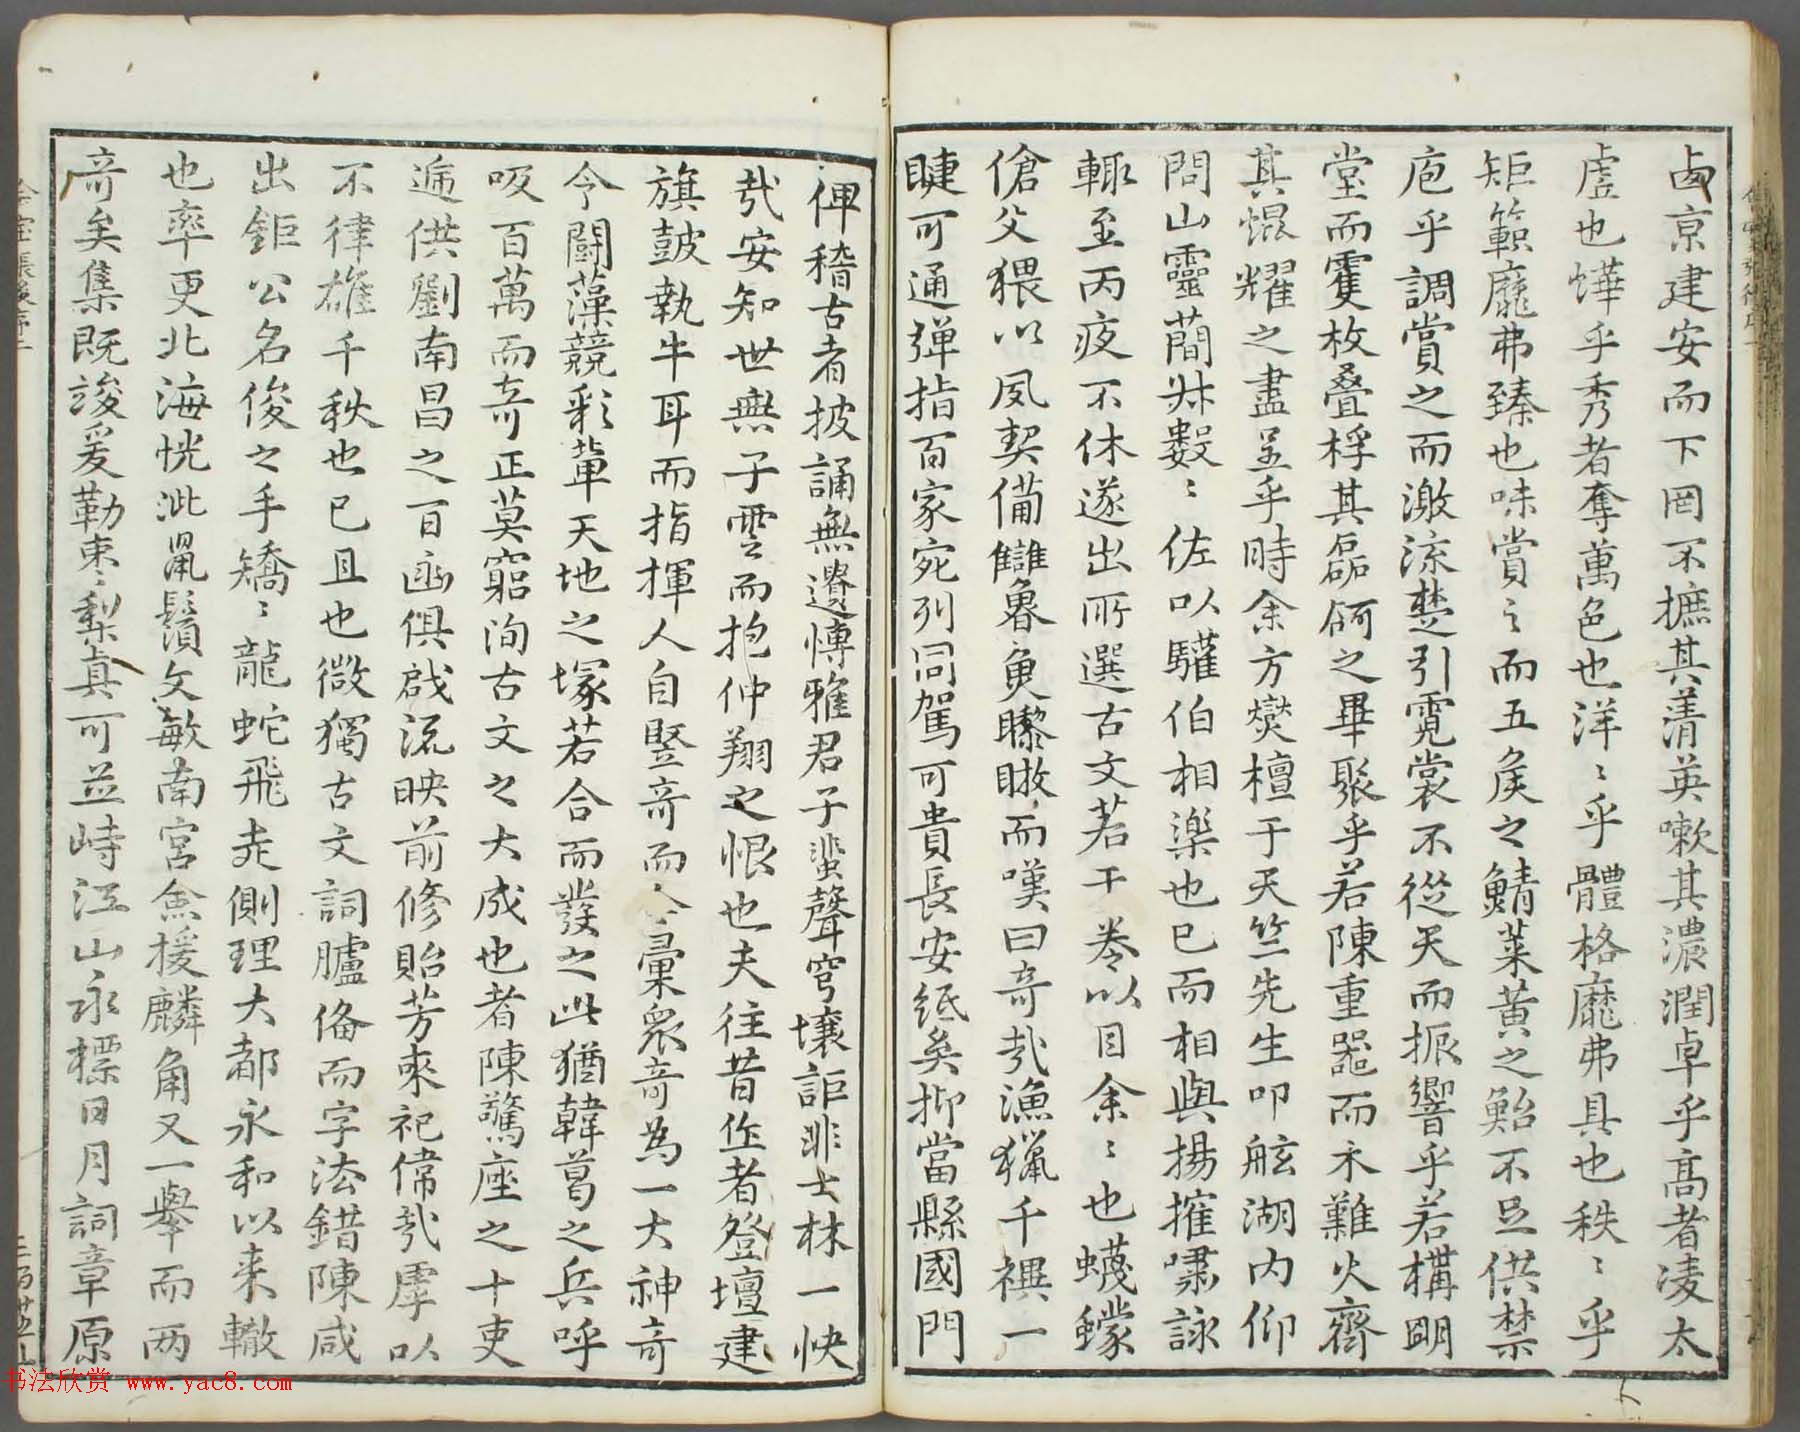 卤京建安而下罔不摭其菁英嗽其濃潤卓乎高者凌太
虛也燁乎秀者奪萬色也洋〻乎體格靡弗具也秩〻乎
矩範靡弗臻也味賞之而五矦之鯖萊黃之鮐不足供禁
庖乎調賞之而激流楚引霓裳不從天而振響乎若構明
堂而隻枚疊桴其磊砢之畢聚乎若陳重器而木難火齊
其焜耀之盡呈乎時余方爕檀于天竺先生叩舷湖内仰
問山靈蕳牀數〻佐以驩伯相樂也已而相與揚搉嘯詠
輙至丙夜不休遂出所選古文若干卷以目余〻也蠛蠓
傖父猥以夙契備讎魯臾矇瞍而嘆曰竒㢤漁獵千禩一
睫可通彈指百家宛列同駕可貴長安紙矣抑當縣國門
俾稽古者披誦無遺慱雅君子蜚聲穹壤詎非士林一快
㢤安知世無子雲而抱仲翔之恨也夫往昔作者登壇建
旗鼓執牛耳而指揮人自竪竒而 彙衆竒為一大神竒
今闘藻競彩葷天地之塚若合而發之此猶韓葛之兵呼
吸百萬而竒正莫窮洵古文之大成也者陳驚座之十吏
遞供劉南昌之百函俱戲流映前修貽芳來祀偉㢤虖以
不律雄千秋也已且也微獨古文詞臚俻而字法錯陳咸
出鉅公名俊之手矯〻龍蛇飛走側理大都永和以来轍
也率更北海恍泚鼠鬚文敏南宮兪援麟角又一舉而两
竒矣集既竣爰勒棗〻梨真可並峙江山永標日月詞章原
书法欣赏 www.yac8.com